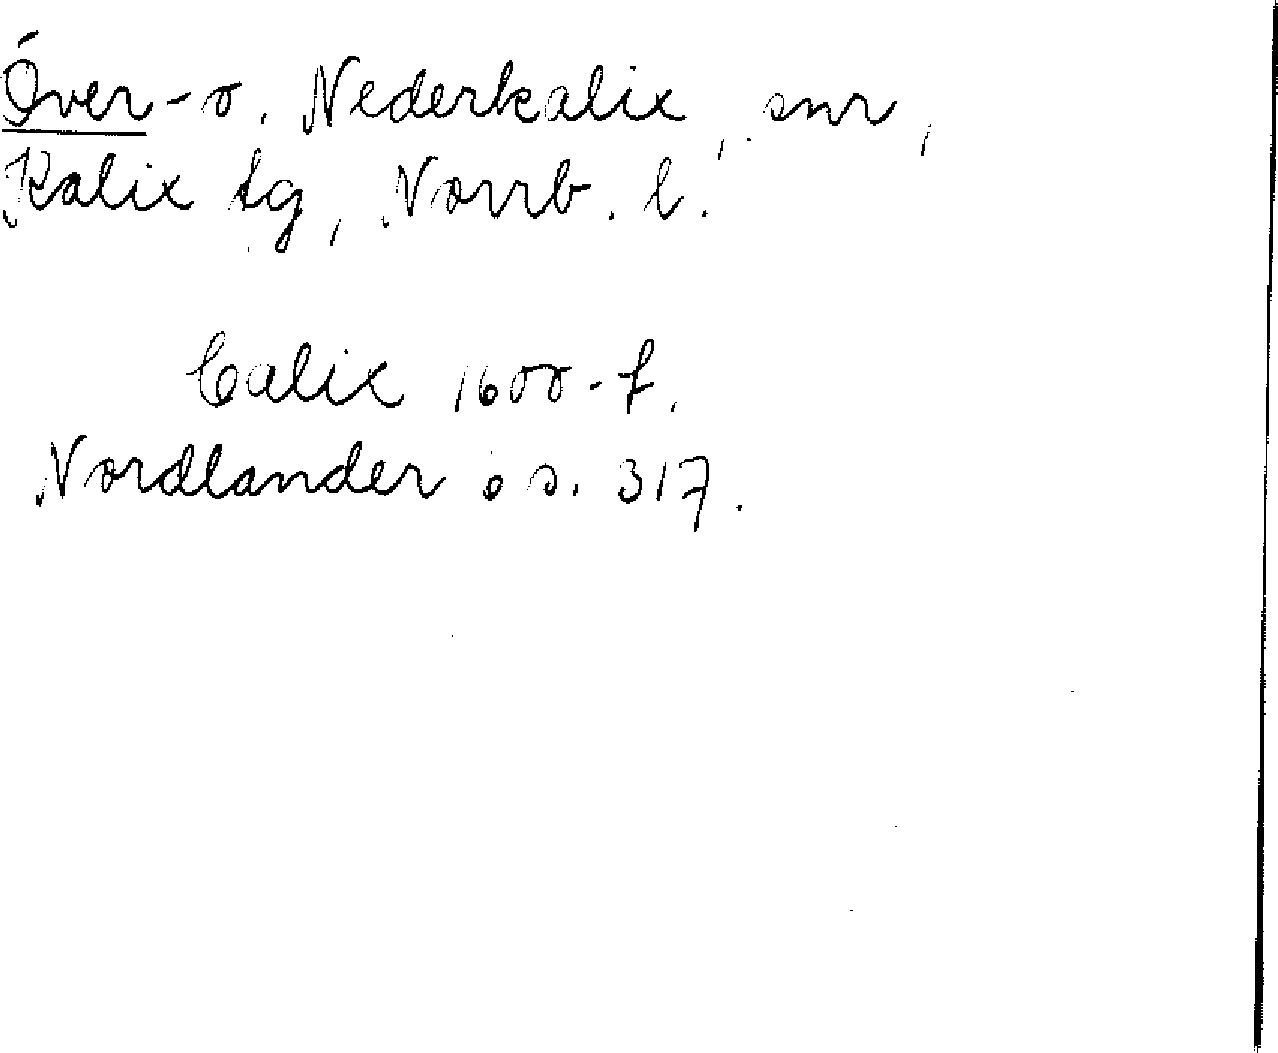 Över- o. Nederkalix, snr,
Kalix tg, Norrb. l.
Calix 1600-t.
Nordlander: s. 317.